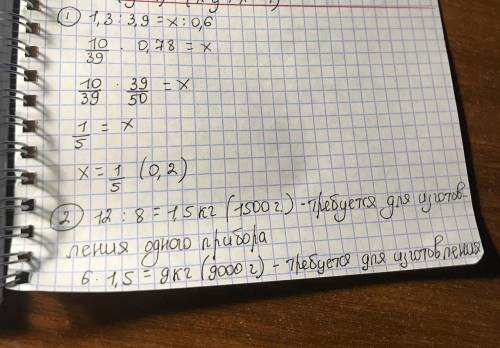 ① 1,3 : 3,9 = x : 0,6
10/39 · 0,78 = x
10/39 · 39/50 = x
1/5 = x
x = 1/5 (0,2)
② 12 : 8 = 1,5 кг (1500 г) - требуется для изготов-
ления одного прибора
6 · 1,5 = 9 кг (9000 г) - требуется для изготовления